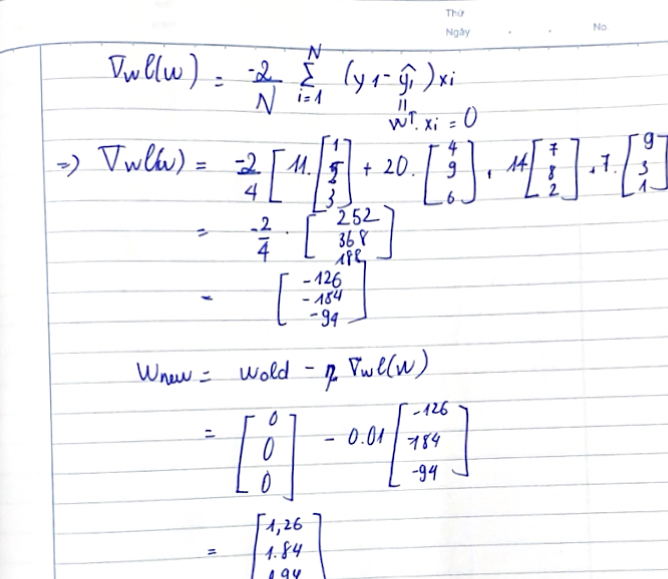 Thứ
Ngày . . No.
∇wl(w) = -2/N Σ_{i=1}^{N} (yi - ŷi) xi
||
wᵀ. xi = 0
=> ∇wl(w) = -2/4 [ 11. [1 5 3] + 20. [4 9 6] + 14 [7 8 2] + 7. [9 3 1]
= -2/4 . [252 368 188]
= [-126 -184 -94]
Wnew = Wold - η. ∇wl(w)
= [0 0 0] - 0.01 [-126 -184 -94]
= [1,26 1.84